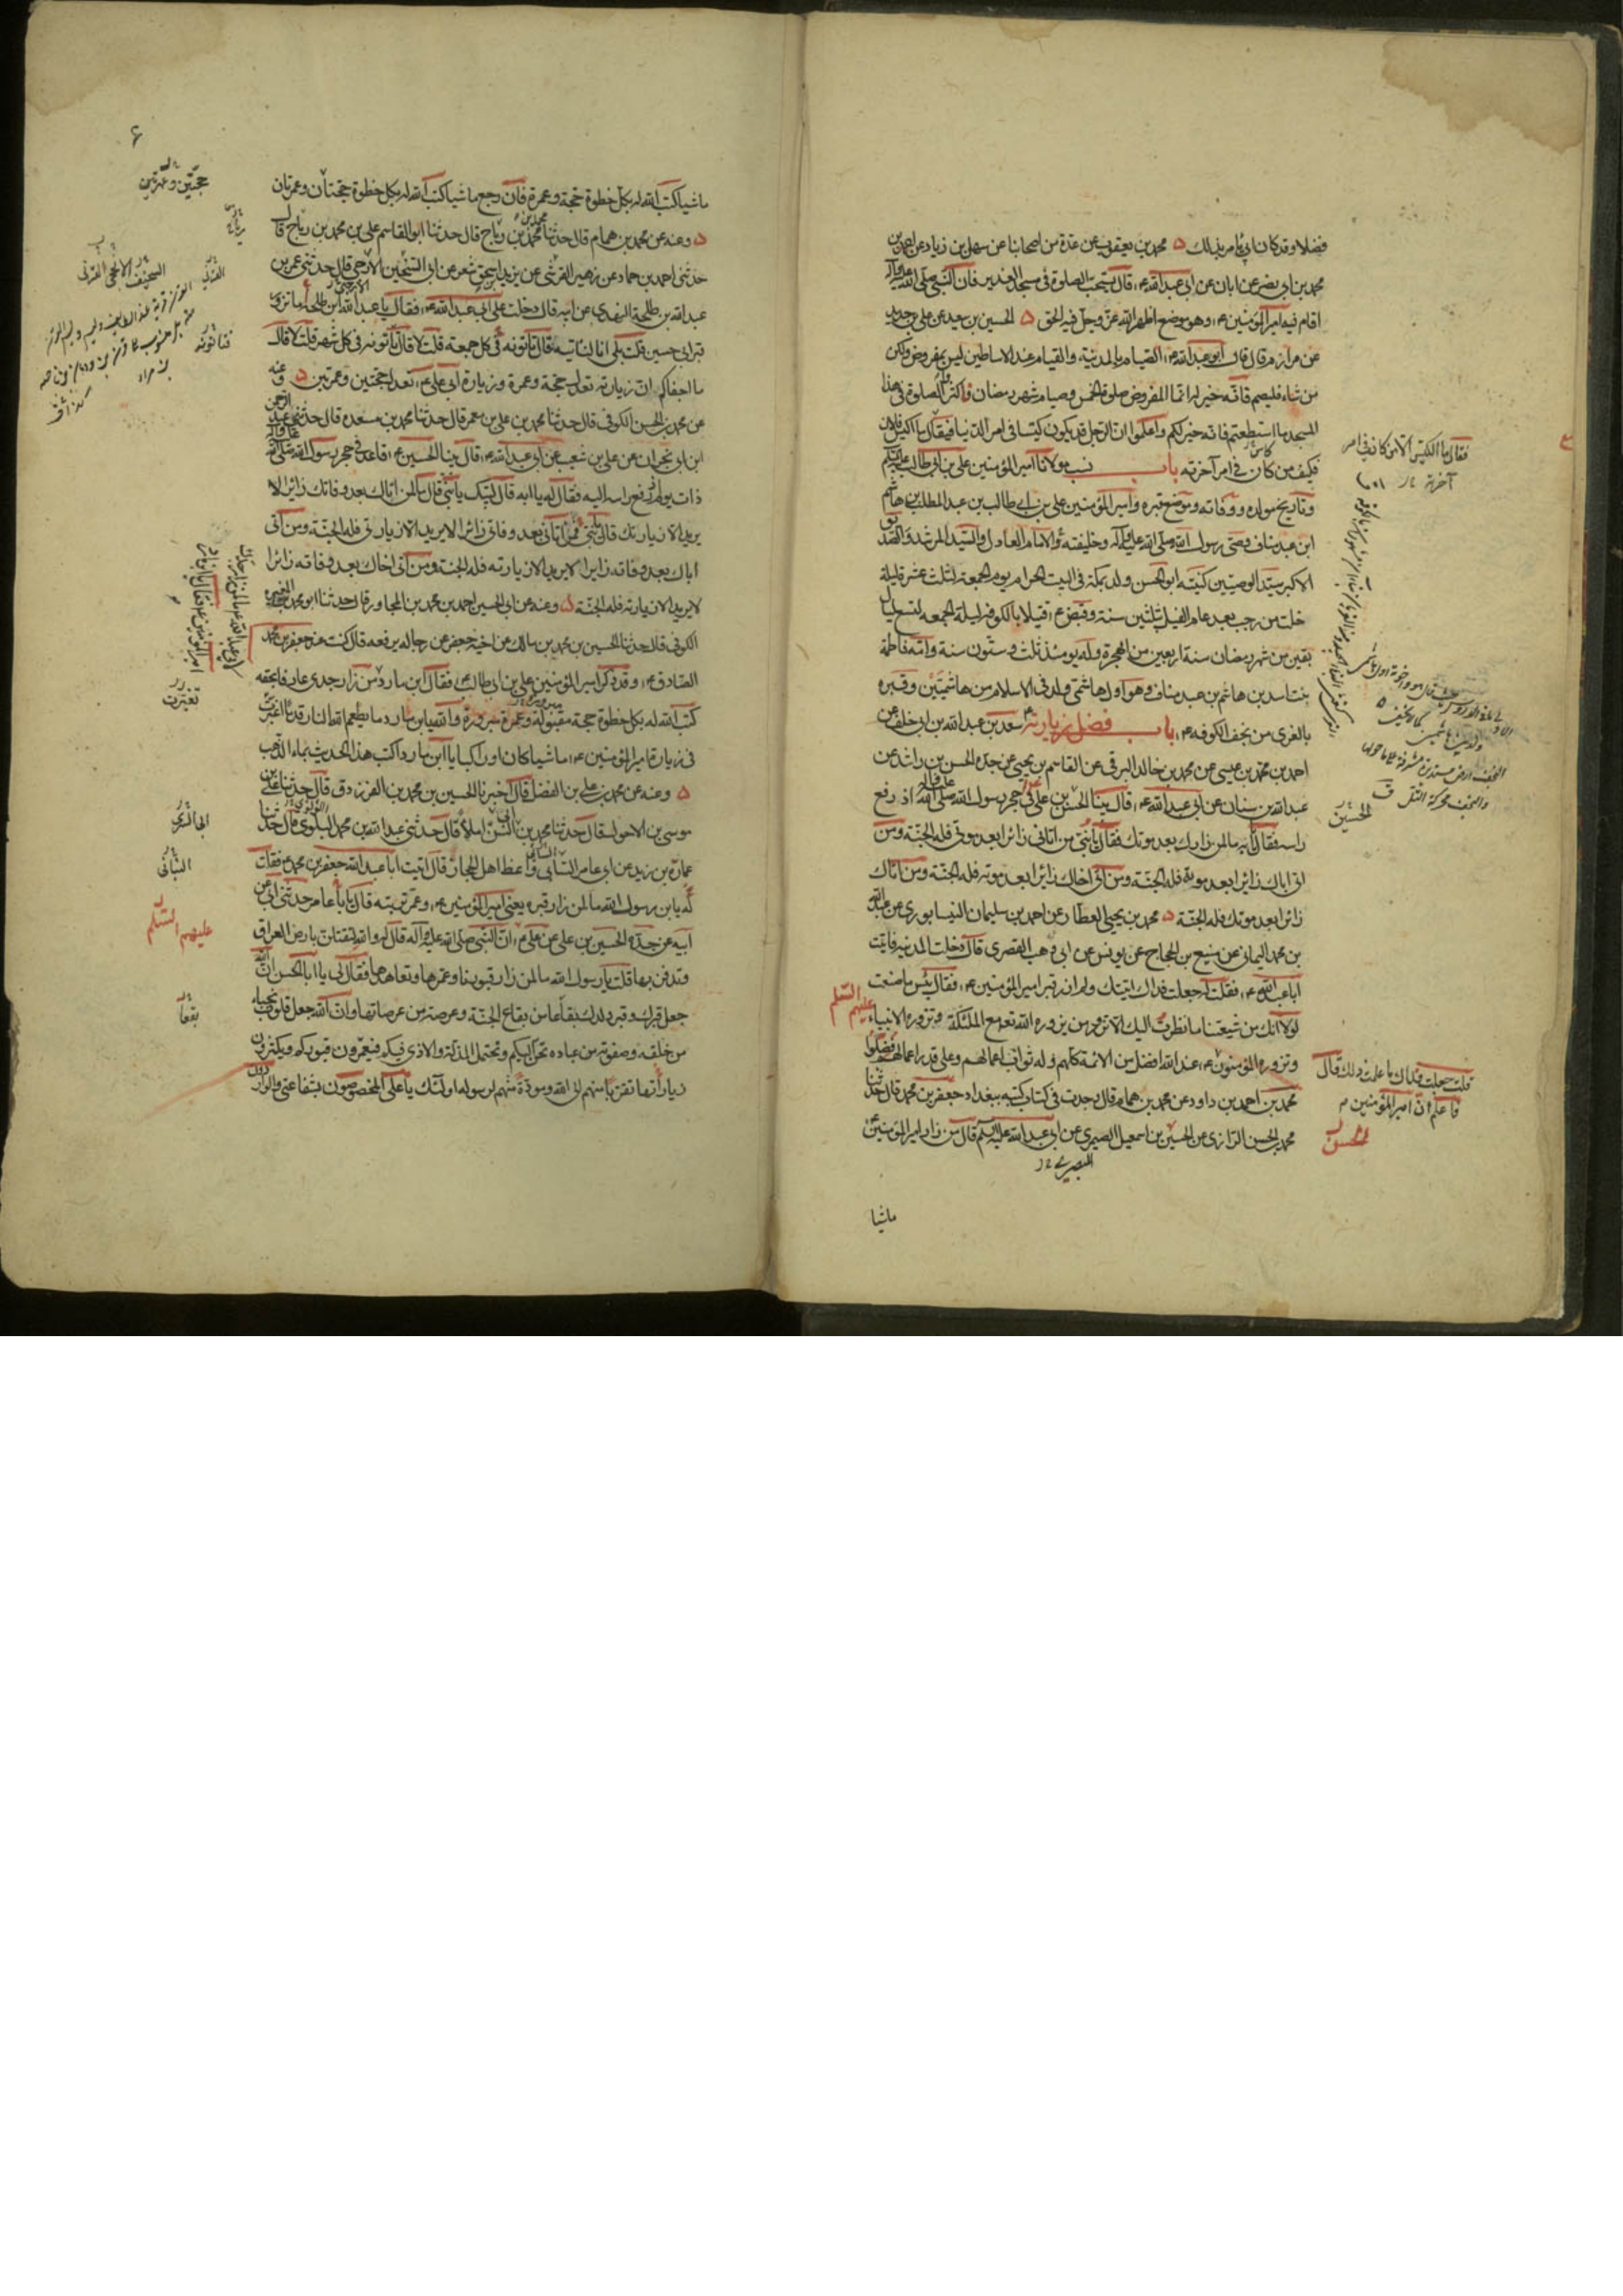 فضلا وقد كان ابي يأمر بذلك ۵ محمد بن يعقوب عن عدة من اصحابنا عن سهل بن زياد عن احمد بن
محمد بن ابي نصر عن ابان عن ابي عبد الله ع، قال يستحب الصلوة في مسجد الغدير فان النبي صلى الله عليه وآله
اقام فيه امير المؤمنين ع، وهو موضع اظهر الله عز وجل فيه الحق ۵ الحسين بن سعيد عن علي بن حديد
عن مرازم قال قال ابو عبد الله ع، الصيام بالمدينة والقيام عند الاساطين ليس بمفروض ولكن
من شاء فليصم فانه خير له انما المفروض صلوة الخمس وصيام شهر رمضان فاكثروا الصلوة في هذا
المسجد ما استطعتم فانه خير لكم واعلموا ان الرجل قد يكون كيسا في امر الدنيا فيقال ما اكيس فلان
فكيف من كان في امر آخرته باب نسب مولانا امير المؤمنين علي بن ابي طالب عليه السلم
وتاريخ مولده ووفاته وموضع قبره وامير المؤمنين علي بن ابي طالب بن عبد المطلب بن هاشم
ابن عبد مناف وصي رسول الله صلى الله عليه وآله وخليفته والامام العادل والسيد المرشد والصديق
الاكبر سيد الوصيين كنيته ابو الحسن ولد بمكة في البيت الحرام يوم الجمعة لثلث عشر ليلة
خلت من رجب بعد عام الفيل بثلثين سنة وقبض ع، قتيلا بالكوفة ليلة الجمعه لتسع ليال
بقين من شهر رمضان سنة اربعين من الهجرة وله يومئذ ثلث وستون سنة وامه فاطمة
بنت اسد بن هاشم بن عبد مناف وهو اول هاشمي ولد في الاسلام من هاشميين وقبره
بالغري من نجف الكوفه ع، باب فضل زيارته سعد بن عبد الله بن ابي خلف عن
احمد بن محمد بن عيسى عن محمد بن خالد البرقي عن القاسم بن يحيى عن جده الحسن بن راشد عن
عبد الله بن سنان عن ابي عبد الله ع، قال بينا الحسن بن علي في حجر رسول الله صلى الله عليه وآله اذ رفع
راسه فقال يا ابه ما لمن زارك بعد موتك فقال يا بني من اتاني زائرا بعد موتي فله الجنة ومن
اتى اباك زائرا بعد موته فله الجنة ومن اتى اخاك زائرا بعد موته فله الجنة ومن اتاك
زائرا بعد موتك فله الجنة ۵ محمد بن يحيى العطار عن احمد بن سليمان النيسابوري عن عبد الله
بن محمد اليماني عن منيع بن الحجاج عن يونس عن ابي وهب القصري قال دخلت المدينه فاتيت
ابا عبد الله ع، فقلت له جعلت فداك اتيتك ولم ازر قبر امير المؤمنين ع، فقال بئس ما صنعت
لولا انك من شيعتنا ما نظرت اليك الا تزور من يزوره الله تع مع الملئكة وتزوره الانبياء عليهم السلم
وتزوره المؤمنون عند الله افضل من الائمة كلهم وله ثواب اعمالهم وعلى قدر اعمالهم فضلوا
محمد بن احمد بن داود عن محمد بن همام قال وجدت في كتاب كتبه ببغداد جعفر بن محمد قال حدثنا
محمد بن الحسن الرازي عن الحسين بن اسمعيل الصيمري عن ابي عبد الله عليه السلم قال من زار امير المؤمنين ع
ماشيا
فقال ما اكيس
آخرته
الحسين
قلت جعلت فداك ما علمت ذلك قال
فاعلم ان امير المؤمنين م
الحسن
ماشيا كتب الله له بكل خطوة حجة وعمرة فان رجع ماشيا كتب الله له بكل خطوة حجتان وعمرتان
۵ وعنه عن محمد بن همام قال حدثنا محمد بن محمد بن رباح قال حدثنا ابو القاسم علي بن محمد بن رباح قال
حدثني احمد بن حماد عن زهير القرشي عن يزيد بن اسحق شعر عن ابي السخين الارجي قال حدثني عمر بن
عبد الله بن طلحة النهدي عن ابيه قال دخلت على ابي عبد الله ع، فقال يا عبد الله ابن طلحة اما تزور
قبر ابي حسين قلت بلى انا لناتيه قال تأتونه في كل جمعه قلت لا قال تأتونه في كل شهر قلت لا قال
ما اجفاكم ان زيارته تعدل حجة وعمرة وزيارة ابي علي ع، تعدل حجتين وعمرتين ۵ وعنه
عن محمد بن الحسن الكوفي قال حدثنا محمد بن علي بن معمر قال حدثنا محمد بن مسعده قال حدثني عبد الرحمن
ابن ابي نجران عن علي بن شعيب عن ابي عبد الله ع، قال بينا الحسين ع، قاعد في حجر رسول الله صلى الله عليه وآله
ذات يوم اذ رفع راسه اليه فقال له يا ابه قال لبيك يا بني قال ما لمن اتاك بعد وفاتك زائرا لا
يريد الا زيارتك قال يا بني من اتاني بعد وفاتي زائرا لا يريد الا زيارتي فله الجنة ومن اتى
اباك بعد وفاته زايرا لا يريد الا زيارته فله الجنة ومن اتى اخاك بعد وفاته زائرا
لا يريد الا زيارته فله الجنة ۵ وعنه عن ابي الحسين احمد بن محمد بن المجاور قال حدثنا ابو محمد بن المغيره
الكوفي قال حدثنا الحسين بن محمد بن مالك عن اخيه جعفر عن رجاله يرفعه قال كنت عند جعفر بن محمد
الصادق ع، وقد ذكر امير المؤمنين علي بن ابي طالب ع، فقال ابن مارد من زار جدي عارفا بحقه
كتب الله له بكل خطوة حجة مقبولة وعمرة مبرورة والله يابن مارد ما يطعم الله النار قدما اغبرت
في زيارة امير المؤمنين ع، ماشيا كان او راكبا يا ابن مارد اكتب هذا الحديث بماء الذهب
۵ وعنه عن محمد بن علي بن الفضل قال اخبرنا الحسين بن محمد بن الفرزدق قال حدثنا علي بن
موسى بن الاحول قال حدثنا محمد بن ابي السري املاء قال حدثني عبد الله بن محمد البلوي قال حدثنا
عمارة بن زيد عن ابي عامر الساني واعظ اهل الحجاز قال اتيت ابا عبد الله جعفر بن محمد ع فقلت
له يابن رسول الله ما لمن زار قبره يعني امير المؤمنين ع، وعمر تربته قال يا ابا عامر حدثني ابي عن
ابيه عن جده الحسين بن علي عن علي ع، ان النبي صلى الله عليه وآله قال له والله لتقتلن بارض العراق
وتدفن بها قلت يا رسول الله ما لمن زار قبورنا وعمرها وتعاهدها فقال لي يا ابا الحسن ان الله
جعل قبرك وقبر ولدك بقاعا من بقاع الجنة وعرصة من عرصاتها وان الله جعل قلوب نجباء
من خلقه وصفوته من عباده تحن اليكم وتحتمل المذلة والاذى فيكم فيعمرون قبوركم ويكثرون
زيارتها تقربا منهم الى الله ومودة منهم لرسوله اولئك يا علي المخصوصون بشفاعتي والواردون
۶
حجتين وعمرتين
رباح
القرني
فتاتونه
تغبرت
البنانى
عليهم السلم
بقعا